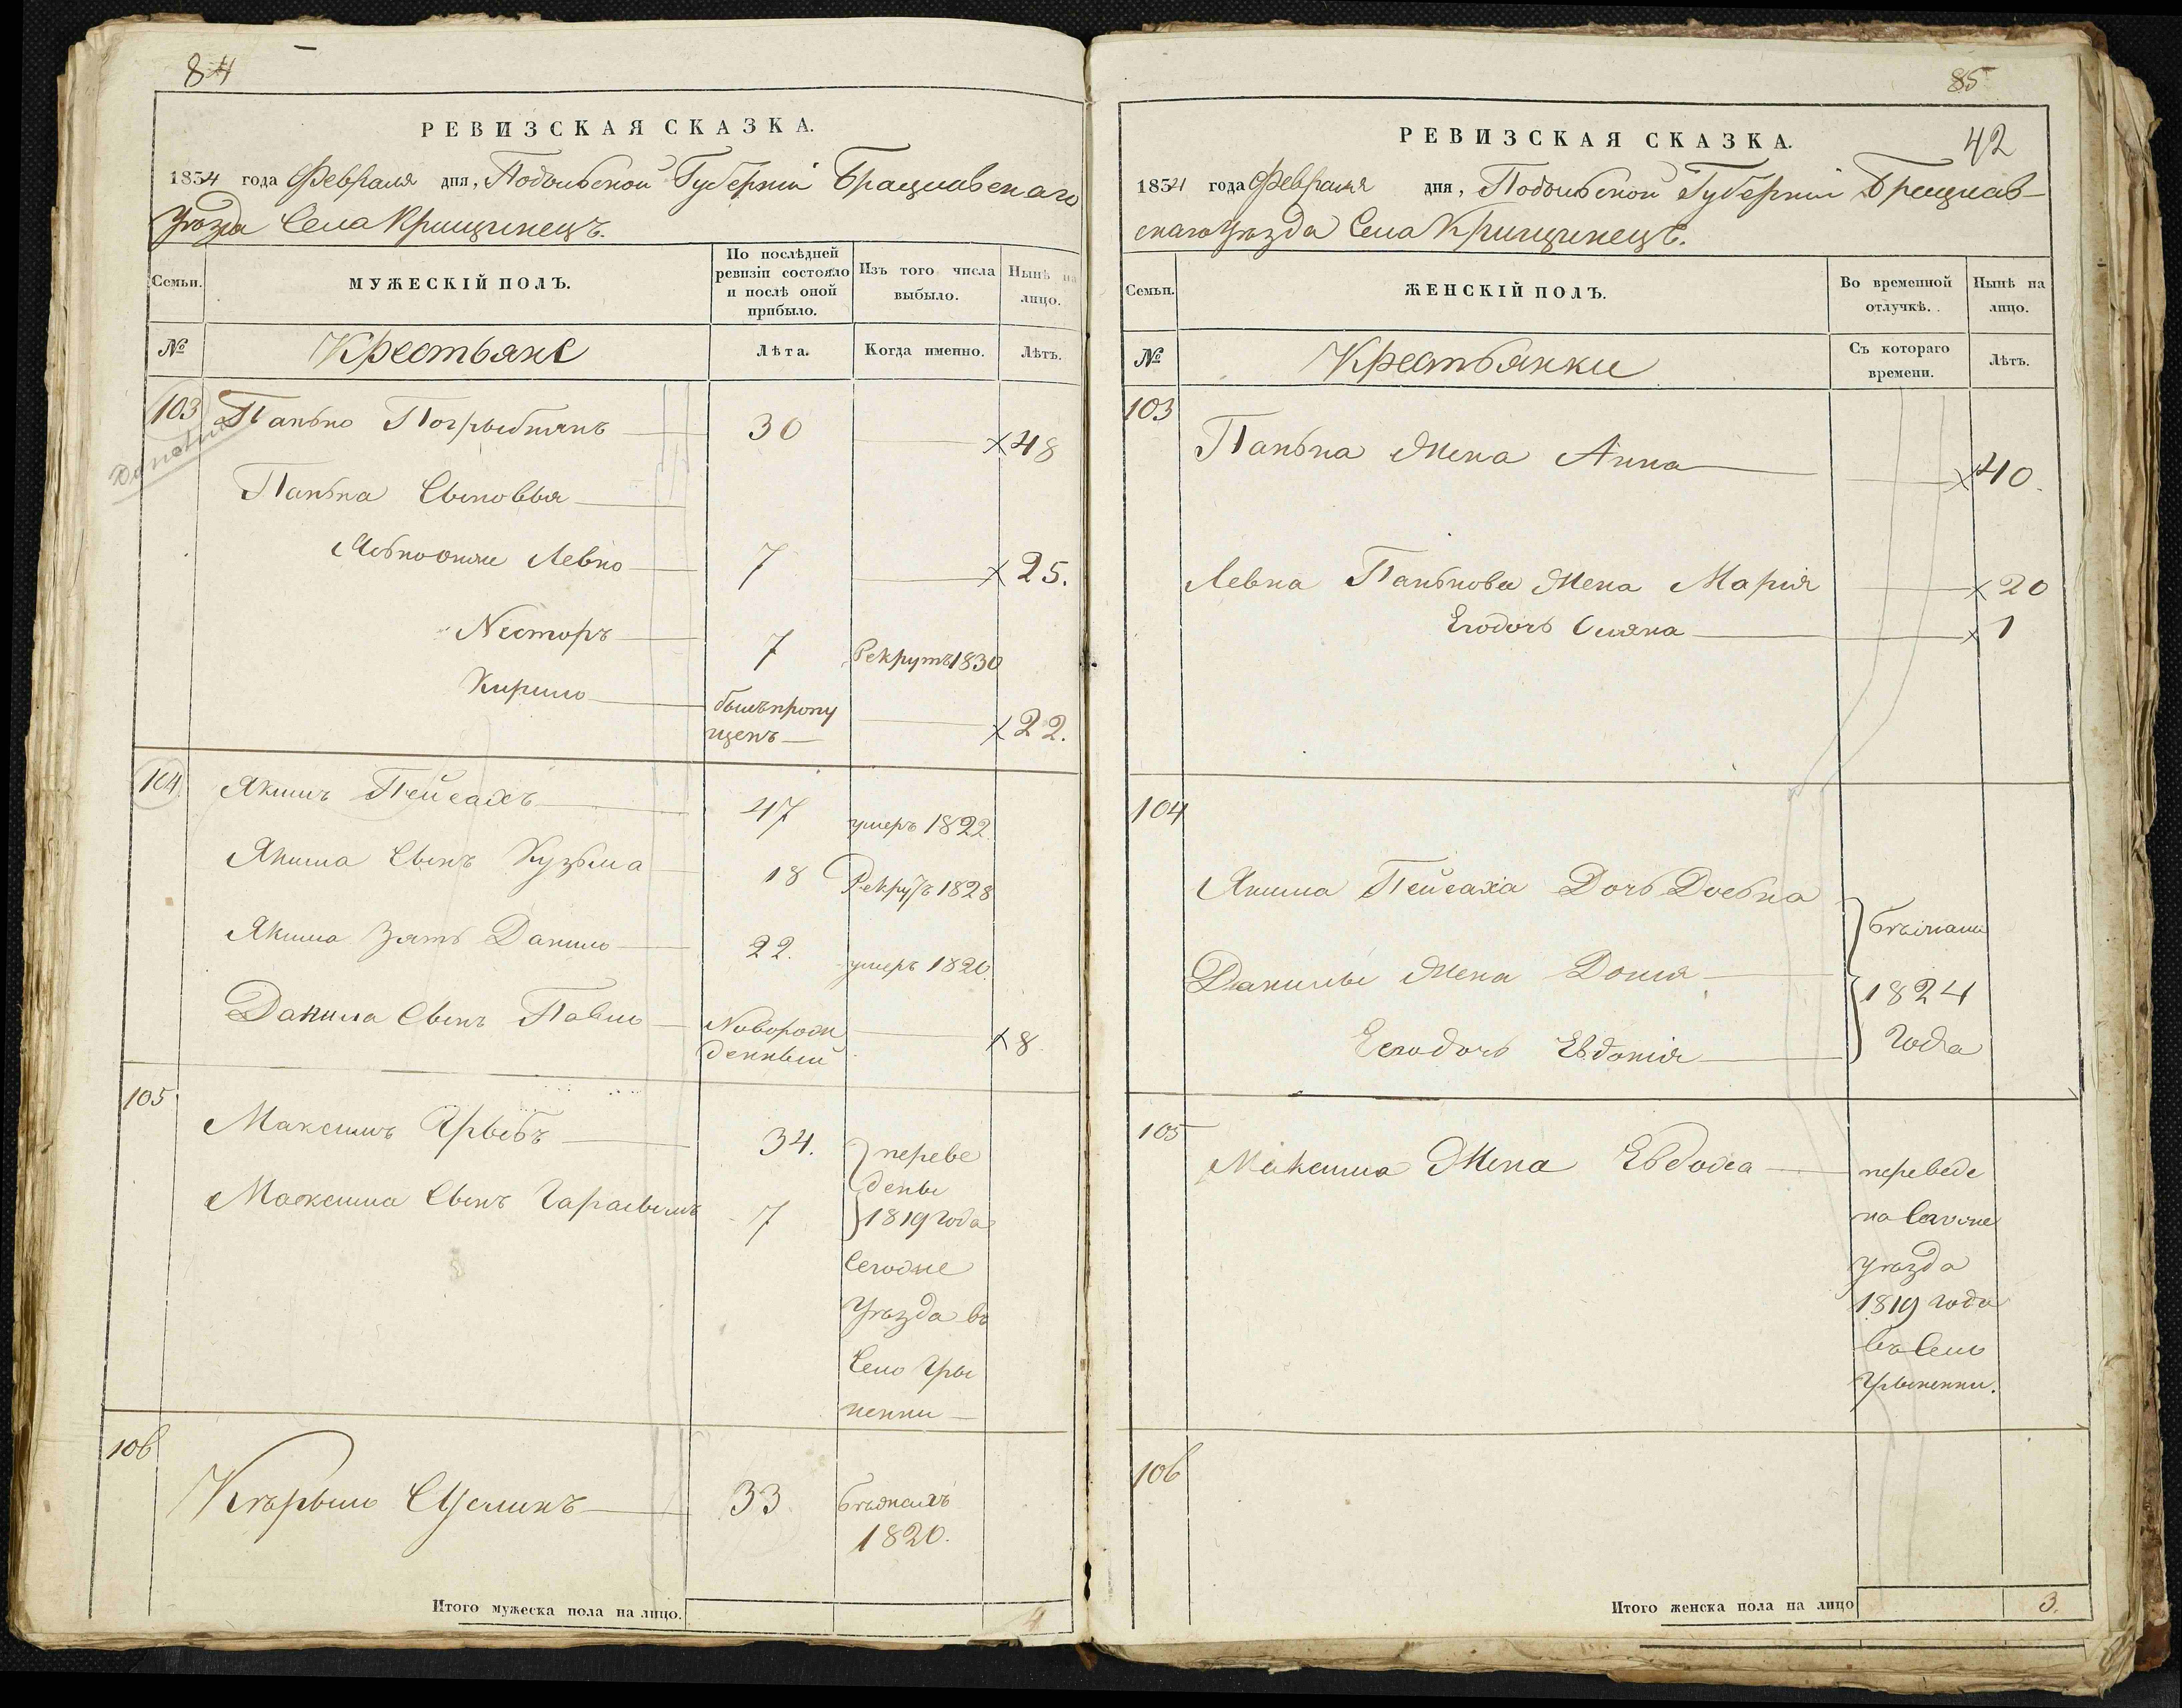 84
РЕВИЗСКАЯ СКАЗКА.
1834 года Февраля дня, Подольской Губерніи Брацлавскаго
уѣзда Села Крищинецъ.
Семьи.
МУЖЕСКІЙ ПОЛЪ.
По послѣдней
ревизіи состояло
и послѣ оной
прибыло.
Изъ того числа
выбыло.
Нынѣ на
лицо.
№
Крестьяне
Лѣта.
Когда именно.
Лѣтъ.
103 Панько 30 48
Панька Сыновья
Левко 7 25.
Несторъ 7 Рекрутъ 1830
Кирило былъ пропу
щенъ 22.
104 Якимъ Пейсахъ 47 умеръ 1822.
Якима Сынъ Кузьма 18 Рекрутъ 1828
Якима Зять Данило 22. умеръ 1820
Данила Сынъ Павло Новорож
денный 8
105 Максимъ 34. переве
дены
Максима Сынъ 7 1819 года
Сегоже
Уѣзда въ
Село Гры
ненки
106 33 бѣжалъ
1820.
Итого мужеска пола на лицо. 4
85
42
РЕВИЗСКАЯ СКАЗКА.
1834 года Февраля дня, Подольской Губерніи Брацлав-
скаго Уѣзда Села Крищинецъ.
Семьи.
ЖЕНСКІЙ ПОЛЪ.
Во временной
отлучкѣ.
Нынѣ на
лицо.
№
Крестьянки
Съ котораго
времени.
Лѣтъ.
103
Панька Жена Анна 40.
Левка Панькова Жена Марія 20
Его дочь Оляна 1
104
Якима Пейсаха Дочь бѣжали
Данилы Жена Домя 1824
Его дочь Евдокія года
105
Максима Жена Евдоха переведе
на Сегоже
уѣзда
1819 года
въ Село
Грыненки.
106
Итого женска пола на лицо 3.